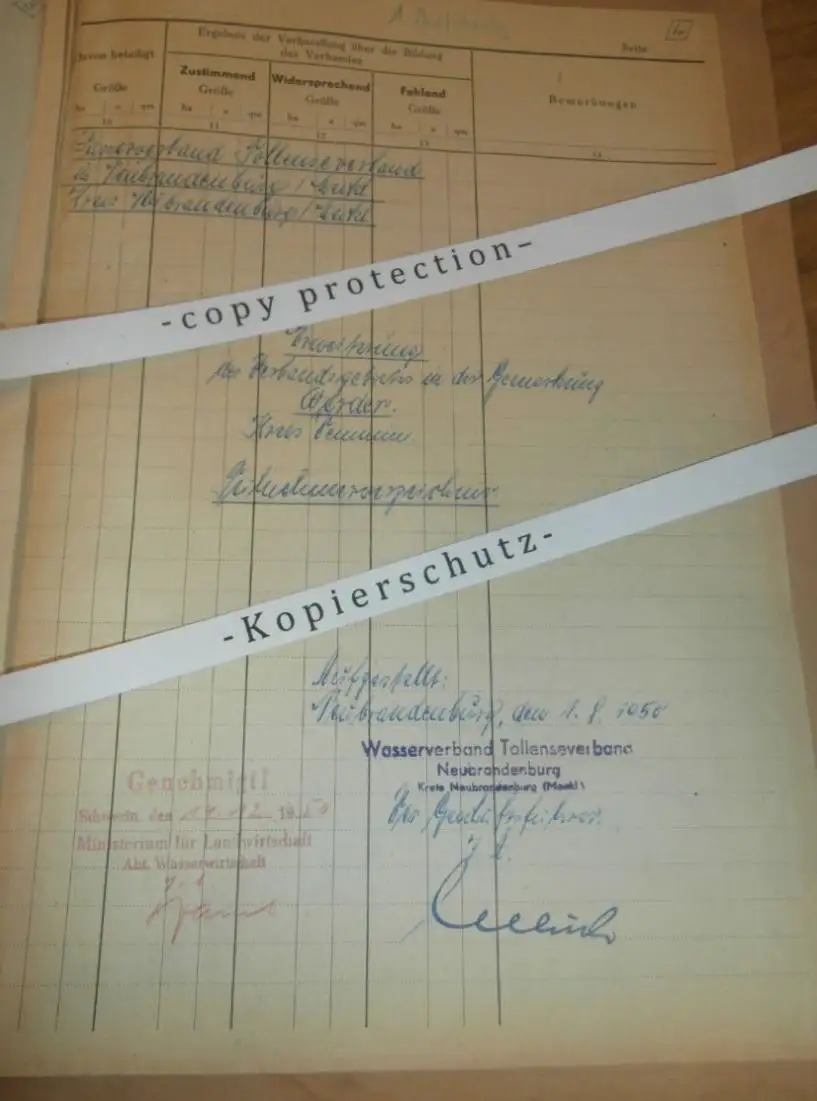 1.
Ergebnis der Verhandlung über die Bildung
des Verbandes
Seite
hiervon beteiligt
Zustimmend
Widersprechend
Fehlend
Bemerkungen
Größe
Größe
Größe
Größe
ha a qm
ha a qm
ha a qm
ha a qm
10
11
12
13
14
Wasserverband Tollenseverband
in Neubrandenburg / Meckl
Kreis Neubrandenburg / Meckl
-copy protection-
Erweiterung
des Verbandsgebietes in der Gemarkung
Werder.
Kreis Demmin.
Teilnehmerverzeichnis
-Kopierschutz-
Aufgestellt:
Neubrandenburg, den 1. 8. 1950
Wasserverband Tollenseverband
Neubrandenburg
Kreis Neubrandenburg (Meckl)
Der Geschäftsführer.
Genehmigt!
Schwerin, den 12 1950
Ministerium für Landwirtschaft
Abt. Wasserwirtschaft